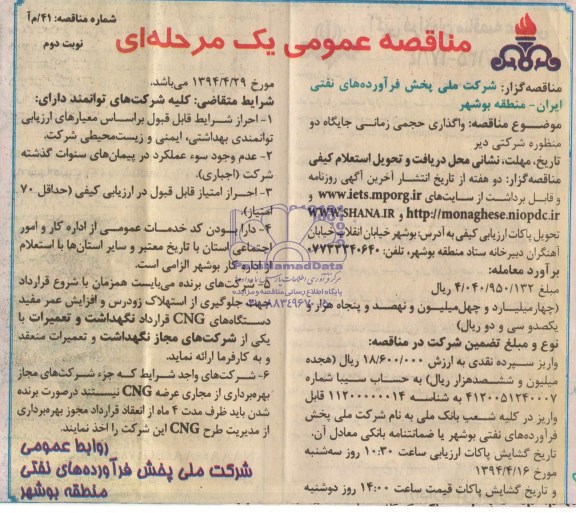 شماره مناقصه: ۴۱/م‌آ
نوبت دوم
مناقصه عمومی یک مرحله‌ای
مناقصه‌گزار: شرکت ملی پخش فرآورده‌های نفتی
ایران- منطقه بوشهر
موضوع مناقصه: واگذاری حجمی زمانی جایگاه دو
منظوره شرکتی دیر
تاریخ، مهلت، نشانی محل دریافت و تحویل استعلام کیفی
مناقصه‌گزار: دو هفته از تاریخ انتشار آخرین آگهی روزنامه
و قابل برداشت از سایت‌های www.iets.mporg.ir و
http://monaghese.niopdc.ir و WWW.SHANA.IR
تحویل پاکات ارزیابی کیفی به آدرس: بوشهر خیابان انقلاب خیابان
آهنگران دبیرخانه ستاد منطقه بوشهر، تلفن: ۰۷۷۳۳۳۴۰۶۴۰
برآورد معامله:
مبلغ ۴/۰۴۰/۹۵۰/۱۳۲ ریال
(چهارمیلیارد و چهل‌میلیون و نهصد و پنجاه هزار و
یکصدو سی و دو ریال)
نوع و مبلغ تضمین شرکت در مناقصه:
واریز سپرده نقدی به ارزش ۱۸/۶۰۰/۰۰۰ ریال (هجده
میلیون و ششصدهزار ریال) به حساب سیبا شماره
۴۱۲۰۰۵۱۲۴۰۰۰۷ به شناسه ۱۱۲۰۰۰۰۰۱۴ قابل
واریز در کلیه شعب بانک ملی به نام شرکت ملی پخش
فرآورده‌های نفتی بوشهر یا ضمانتنامه بانکی معادل آن.
تاریخ گشایش پاکات ارزیابی ساعت ۱۰:۳۰ روز سه‌شنبه
مورخ ۱۳۹۴/۴/۱۶
و تاریخ گشایش پاکات قیمت ساعت ۱۴:۰۰ روز دوشنبه
مورخ ۱۳۹۴/۴/۲۹ می‌باشد.
شرایط متقاضی: کلیه شرکت‌های توانمند دارای:
۱- احراز شرایط قابل قبول براساس معیارهای ارزیابی
توانمندی بهداشتی، ایمنی و زیست‌محیطی شرکت.
۲- عدم وجود سوء عملکرد در پیمان‌های سنوات گذشته
شرکت (اجباری).
۳- احراز امتیاز قابل قبول در ارزیابی کیفی (حداقل ۷۰
امتیاز).
۴- دارا بودن کد خدمات عمومی از اداره کار و امور
اجتماعی استان با تاریخ معتبر و سایر استان‌ها با استعلام
از اداره کار بوشهر الزامی است.
۵- شرکت‌های برنده می‌بایست همزمان با شروع قرارداد
جهت جلوگیری از استهلاک زودرس و افزایش عمر مفید
دستگاه‌های CNG قرارداد نگهداشت و تعمیرات با
یکی از شرکت‌های مجاز نگهداشت و تعمیرات منعقد
و به کارفرما ارائه نماید.
۶- شرکت‌های واجد شرایط که جزء شرکت‌های مجاز
بهره‌برداری از مجاری عرضه CNG نیستند درصورت برنده
شدن باید ظرف مدت ۴ ماه از انعقاد قرارداد مجوز بهره‌برداری
از مدیریت طرح CNG این شرکت را اخذ نمایند.
روابط عمومی
شرکت ملی پخش فرآورده‌های نفتی
منطقه بوشهر
ParsNamadData